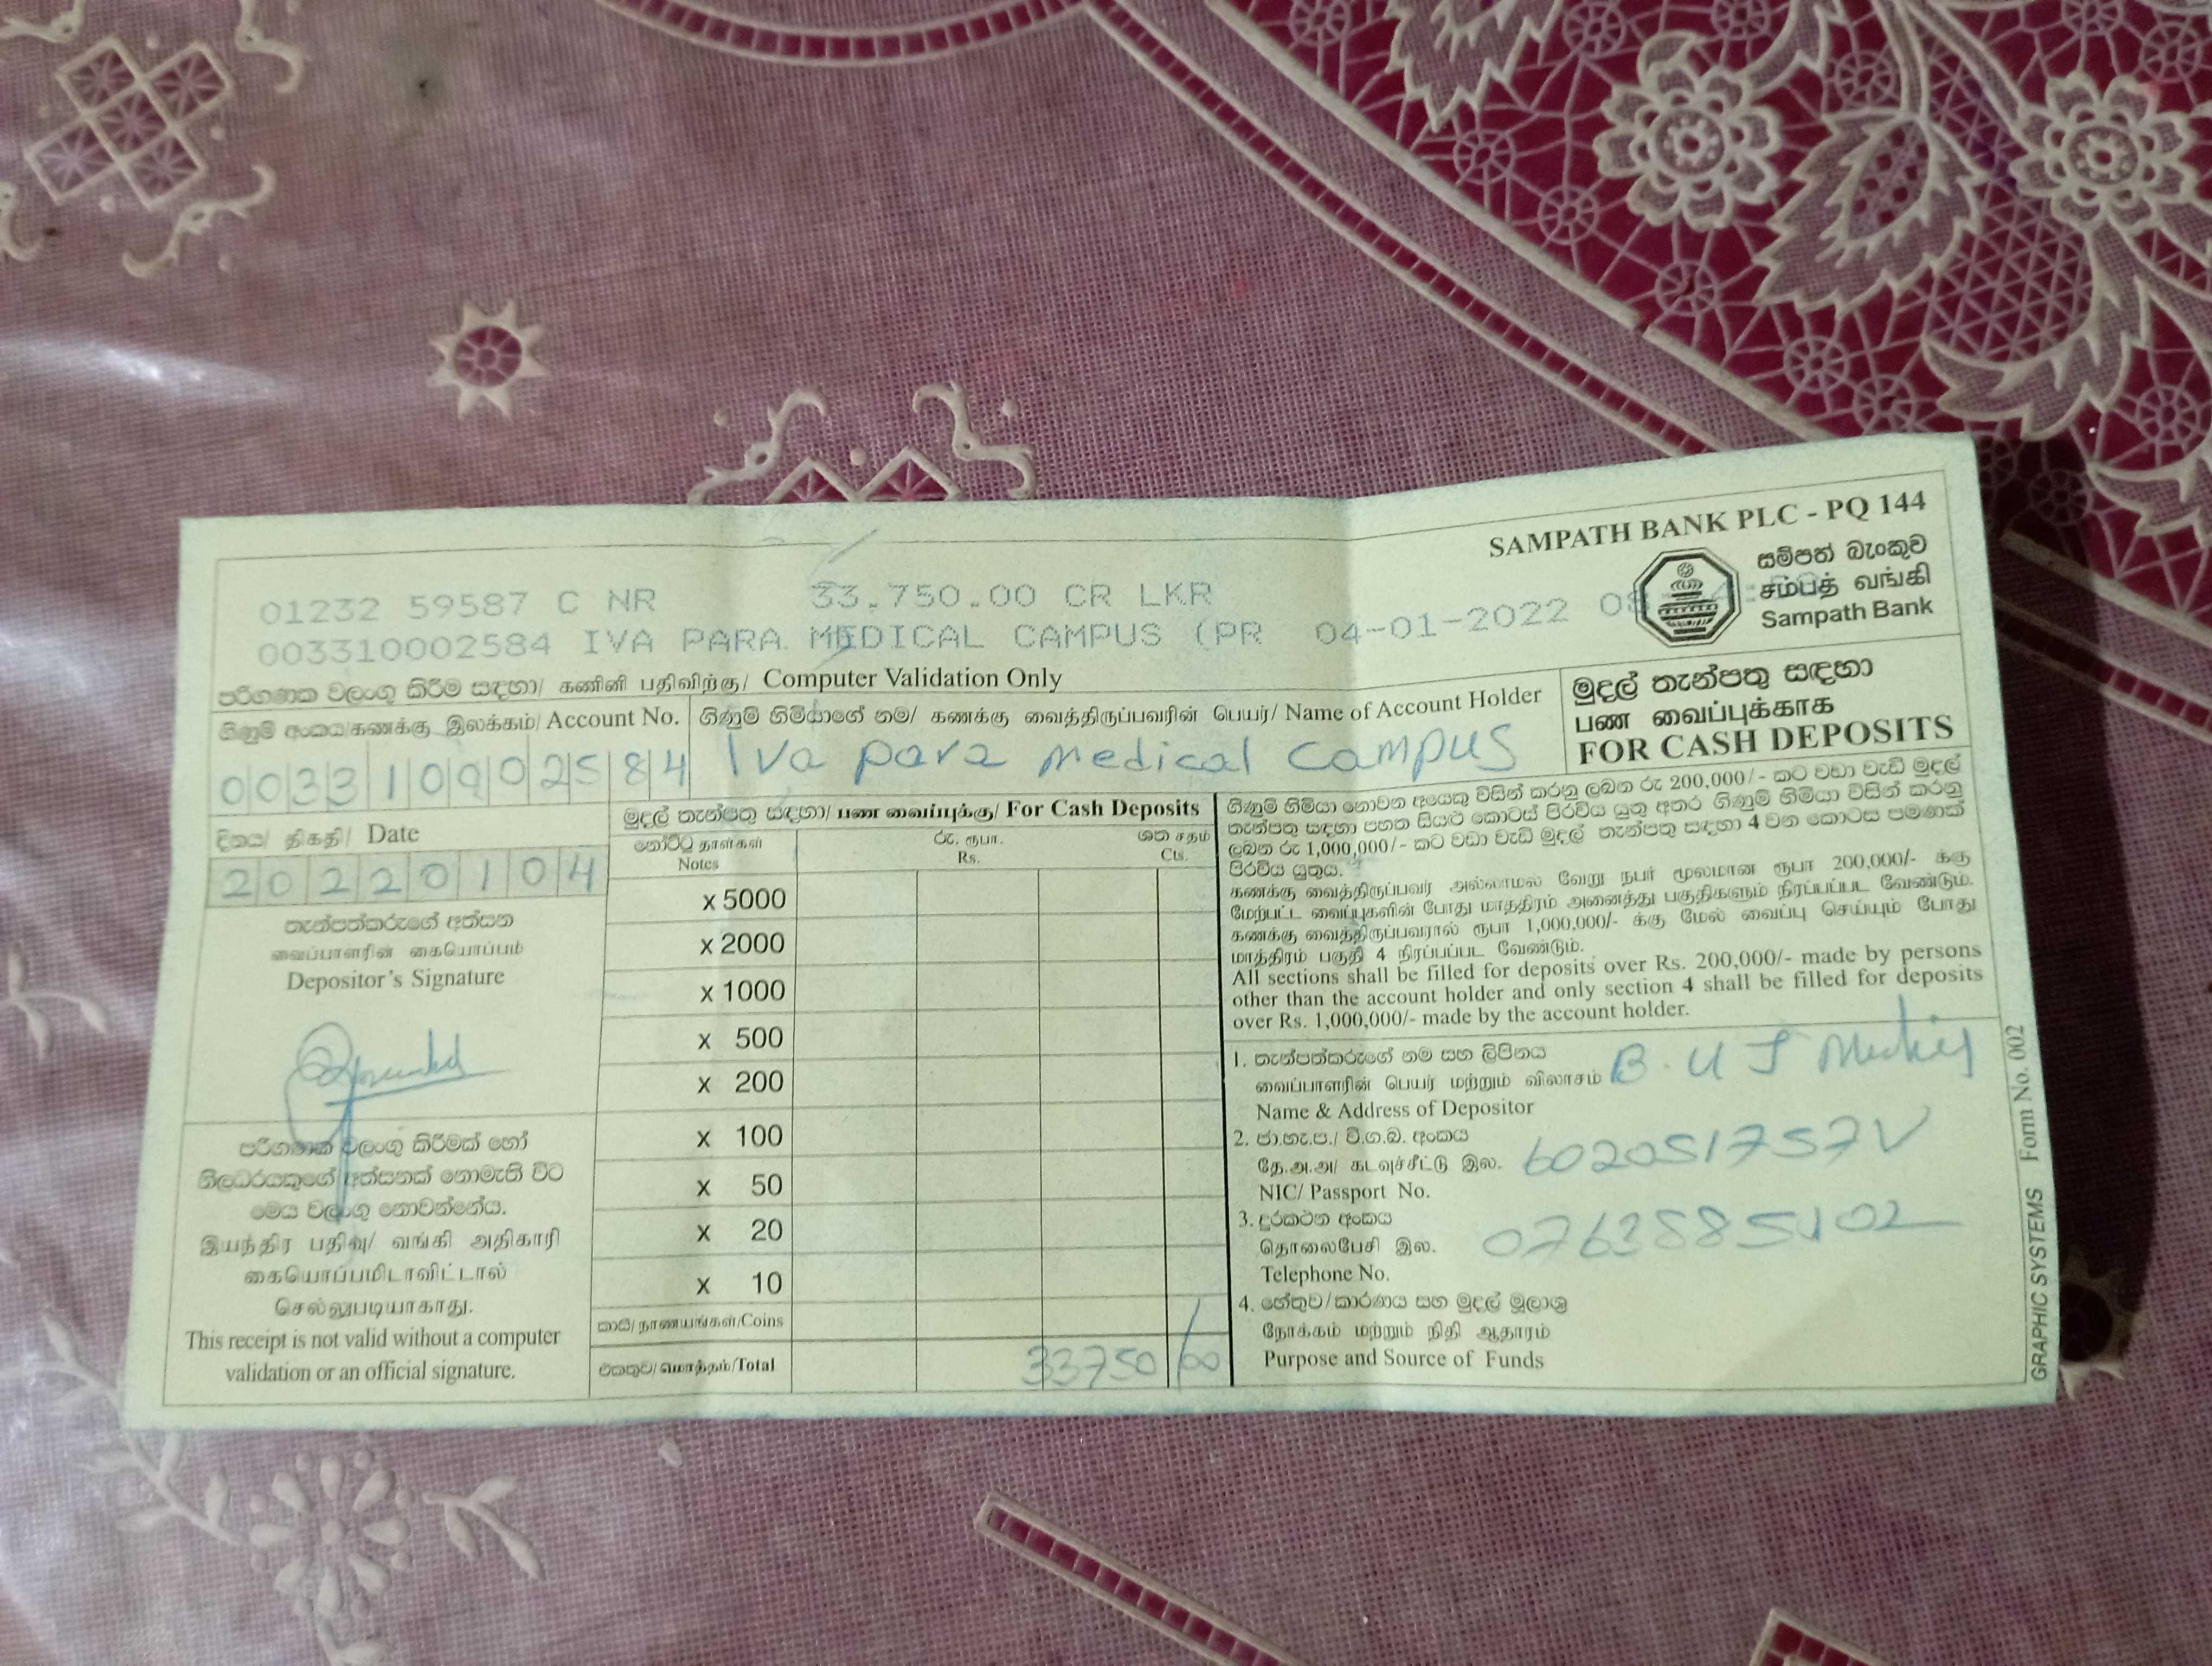 SAMPATH BANK PLC - PQ 144
සම්පත් බැංකුව
சம்பத் வங்கி
Sampath Bank
01232 59587 C NR 33,750.00 CR LKR
003310002584 IVA PARA MEDICAL CAMPUS (PR 04-01-2022
පරිගණක වලංගු කිරීම සඳහා/ கணினி பதிவிற்கு/ Computer Validation Only
මුදල් තැන්පතු සඳහා
பண வைப்புக்காக
FOR CASH DEPOSITS
ගිණුම් අංකය/கணக்கு இலக்கம்/ Account No.
003310002584
ගිණුම් හිමියාගේ නම/ கணக்கு வைத்திருப்பவரின் பெயர்/ Name of Account Holder
Iva para medical campus
දිනය/ திகதி/ Date
20220104
තැන්පත්කරුගේ අත්සන
வைப்பாளரின் கையொப்பம்
Depositor's Signature
පරිගණක වලංගු කිරීමක් හෝ
නිලධරයකුගේ අත්සනක් නොමැති විට
මෙය වලංගු නොවන්නේය.
இயந்திர பதிவு/ வங்கி அதிகாரி
கையொப்பமிடாவிட்டால்
செல்லுபடியாகாது.
This receipt is not valid without a computer
validation or an official signature.
මුදල් තැන්පතු සඳහා/ பண வைப்புக்கு/ For Cash Deposits
නෝට්ටු தாள்கள்
Notes
රු. ரூபா.
Rs.
ශත சதம்
Cts.
x 5000
x 2000
x 1000
x 500
x 200
x 100
x 50
x 20
x 10
කාසි/நாணயங்கள்/Coins
එකතුව/மொத்தம்/Total 33750/00
ගිණුම් හිමියා නොවන අයෙකු විසින් කරනු ලබන රු 200,000/- කට වඩා වැඩි මුදල්
තැන්පතු සඳහා පහත සියළු කොටස් පිරවිය යුතු අතර ගිණුම් හිමියා විසින් කරනු
ලබන රු 1,000,000/- කට වඩා වැඩි මුදල් තැන්පතු සඳහා 4 වන කොටස පමණක්
පිරවිය යුතුය.
கணக்கு வைத்திருப்பவர் அல்லாமல் வேறு நபர் மூலமான ரூபா 200,000/- க்கு
மேற்பட்ட வைப்புகளின் போது மாத்திரம் அனைத்து பகுதிகளும் நிரப்பப்பட வேண்டும்.
கணக்கு வைத்திருப்பவரால் ரூபா 1,000,000/- க்கு மேல் வைப்பு செய்யும் போது
மாத்திரம் பகுதி 4 நிரப்பப்பட வேண்டும்.
All sections shall be filled for deposits over Rs. 200,000/- made by persons
other than the account holder and only section 4 shall be filled for deposits
over Rs. 1,000,000/- made by the account holder.
1. තැන්පත්කරුගේ නම සහ ලිපිනය
வைப்பாளரின் பெயர் மற்றும் விலாசம் B. U J
Name & Address of Depositor
2. ජා.හැ.ප./ වි.ග.බ. අංකය
தே.அ.அ/ கடவுச்சீட்டு இல. 602051757V
NIC/ Passport No.
3. දුරකථන අංකය
தொலைபேசி இல.
Telephone No.
4. හේතුව/කාරණය සහ මුදල් මූලාශ්‍ර
நோக்கம் மற்றும் நிதி ஆதாரம்
Purpose and Source of Funds
GRAPHIC SYSTEMS Form No. 002